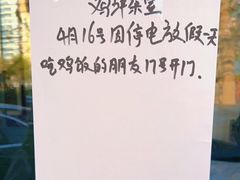 4月16号因停电放假一天
吃鸡饭的朋友17号开门.